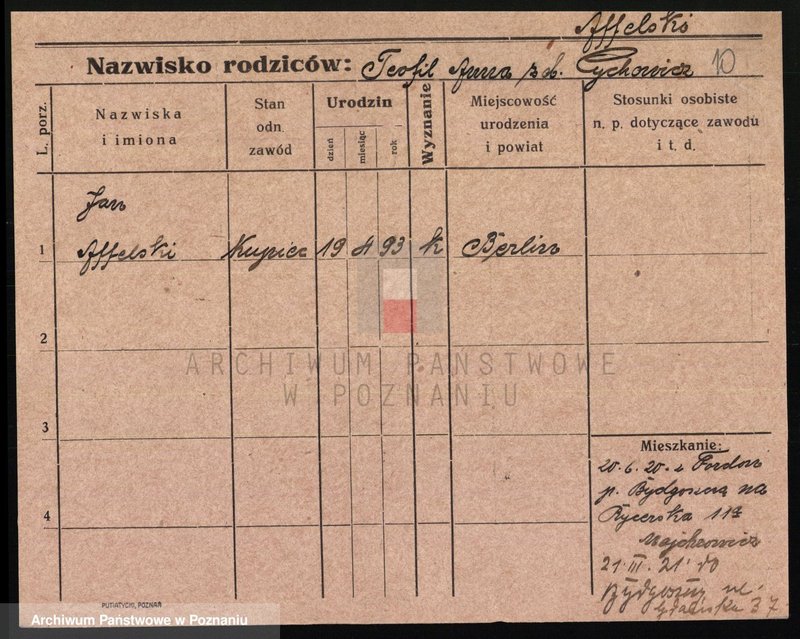 Affelski
Nazwisko rodziców: Teofil Anna z d. Cychowicz 10
L. porz.
Nazwiska
i imiona
Stan
odn.
zawód
Urodzin
dzień
miesiąc
rok
Wyznanie
Miejscowość
urodzenia
i powiat
Stosunki osobiste
n. p. dotyczące zawodu
i t. d.
Jan
1 Affelski Kupiec 19 4 93 k Berlin
2
ARCHIWUM PAŃSTWOWE
W POZNANIU
3
4
Mieszkanie:
20.6.20. z Fordon
p. Bydgoszcz na
Rycerska 11a
Majchrowicz
21.III.21. do
Bydgoszczy ul.
Gdańska 37
PUTIATYCKI, POZNAŃ
Archiwum Państwowe w Poznaniu